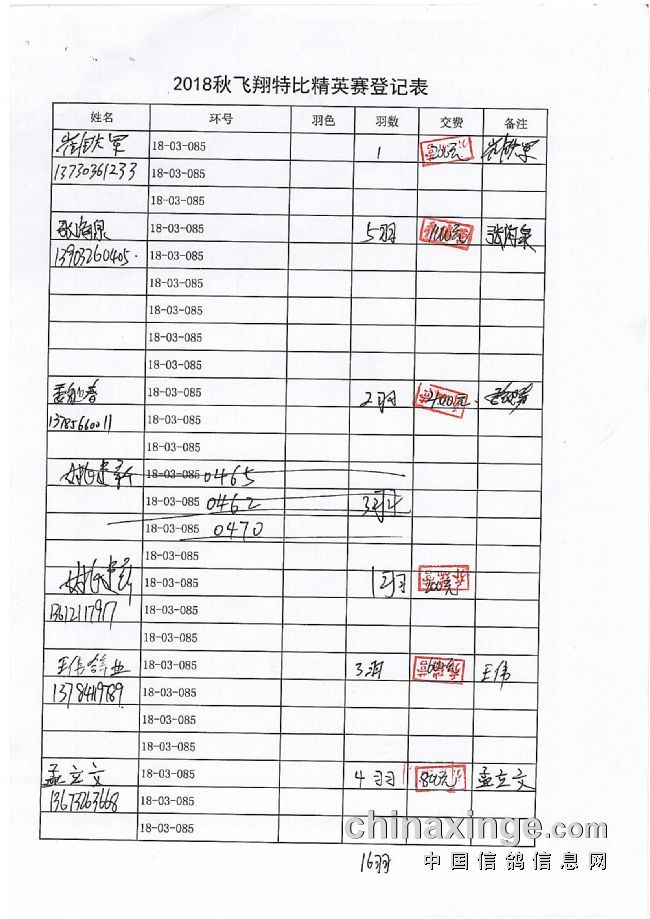 2018秋飞翔特比精英赛登记表
姓名 环号 羽色 羽数 交费 备注
崔铁军 18-03-085 1 200元 崔铁军
13730361233 18-03-085
18-03-085
张海泉 18-03-085 5羽 1000元 张海泉
13903260405. 18-03-085
18-03-085
18-03-085
18-03-085
18-03-085
18-03-085 2羽 400元
13785660011 18-03-085
18-03-085
18-03-085 0465
18-03-085 0462 3羽
18-03-085 0470
18-03-085
18-03-085 1羽 200元
18-03-085
18-03-085
王伟鸽业 18-03-085 3羽 600元 王伟
13784119789 18-03-085
18-03-085
18-03-085
孟立文 18-03-085 4羽 800元 孟立文
13673263668 18-03-085
18-03-085
16羽
chinaxinge.com
中国信鸽信息网